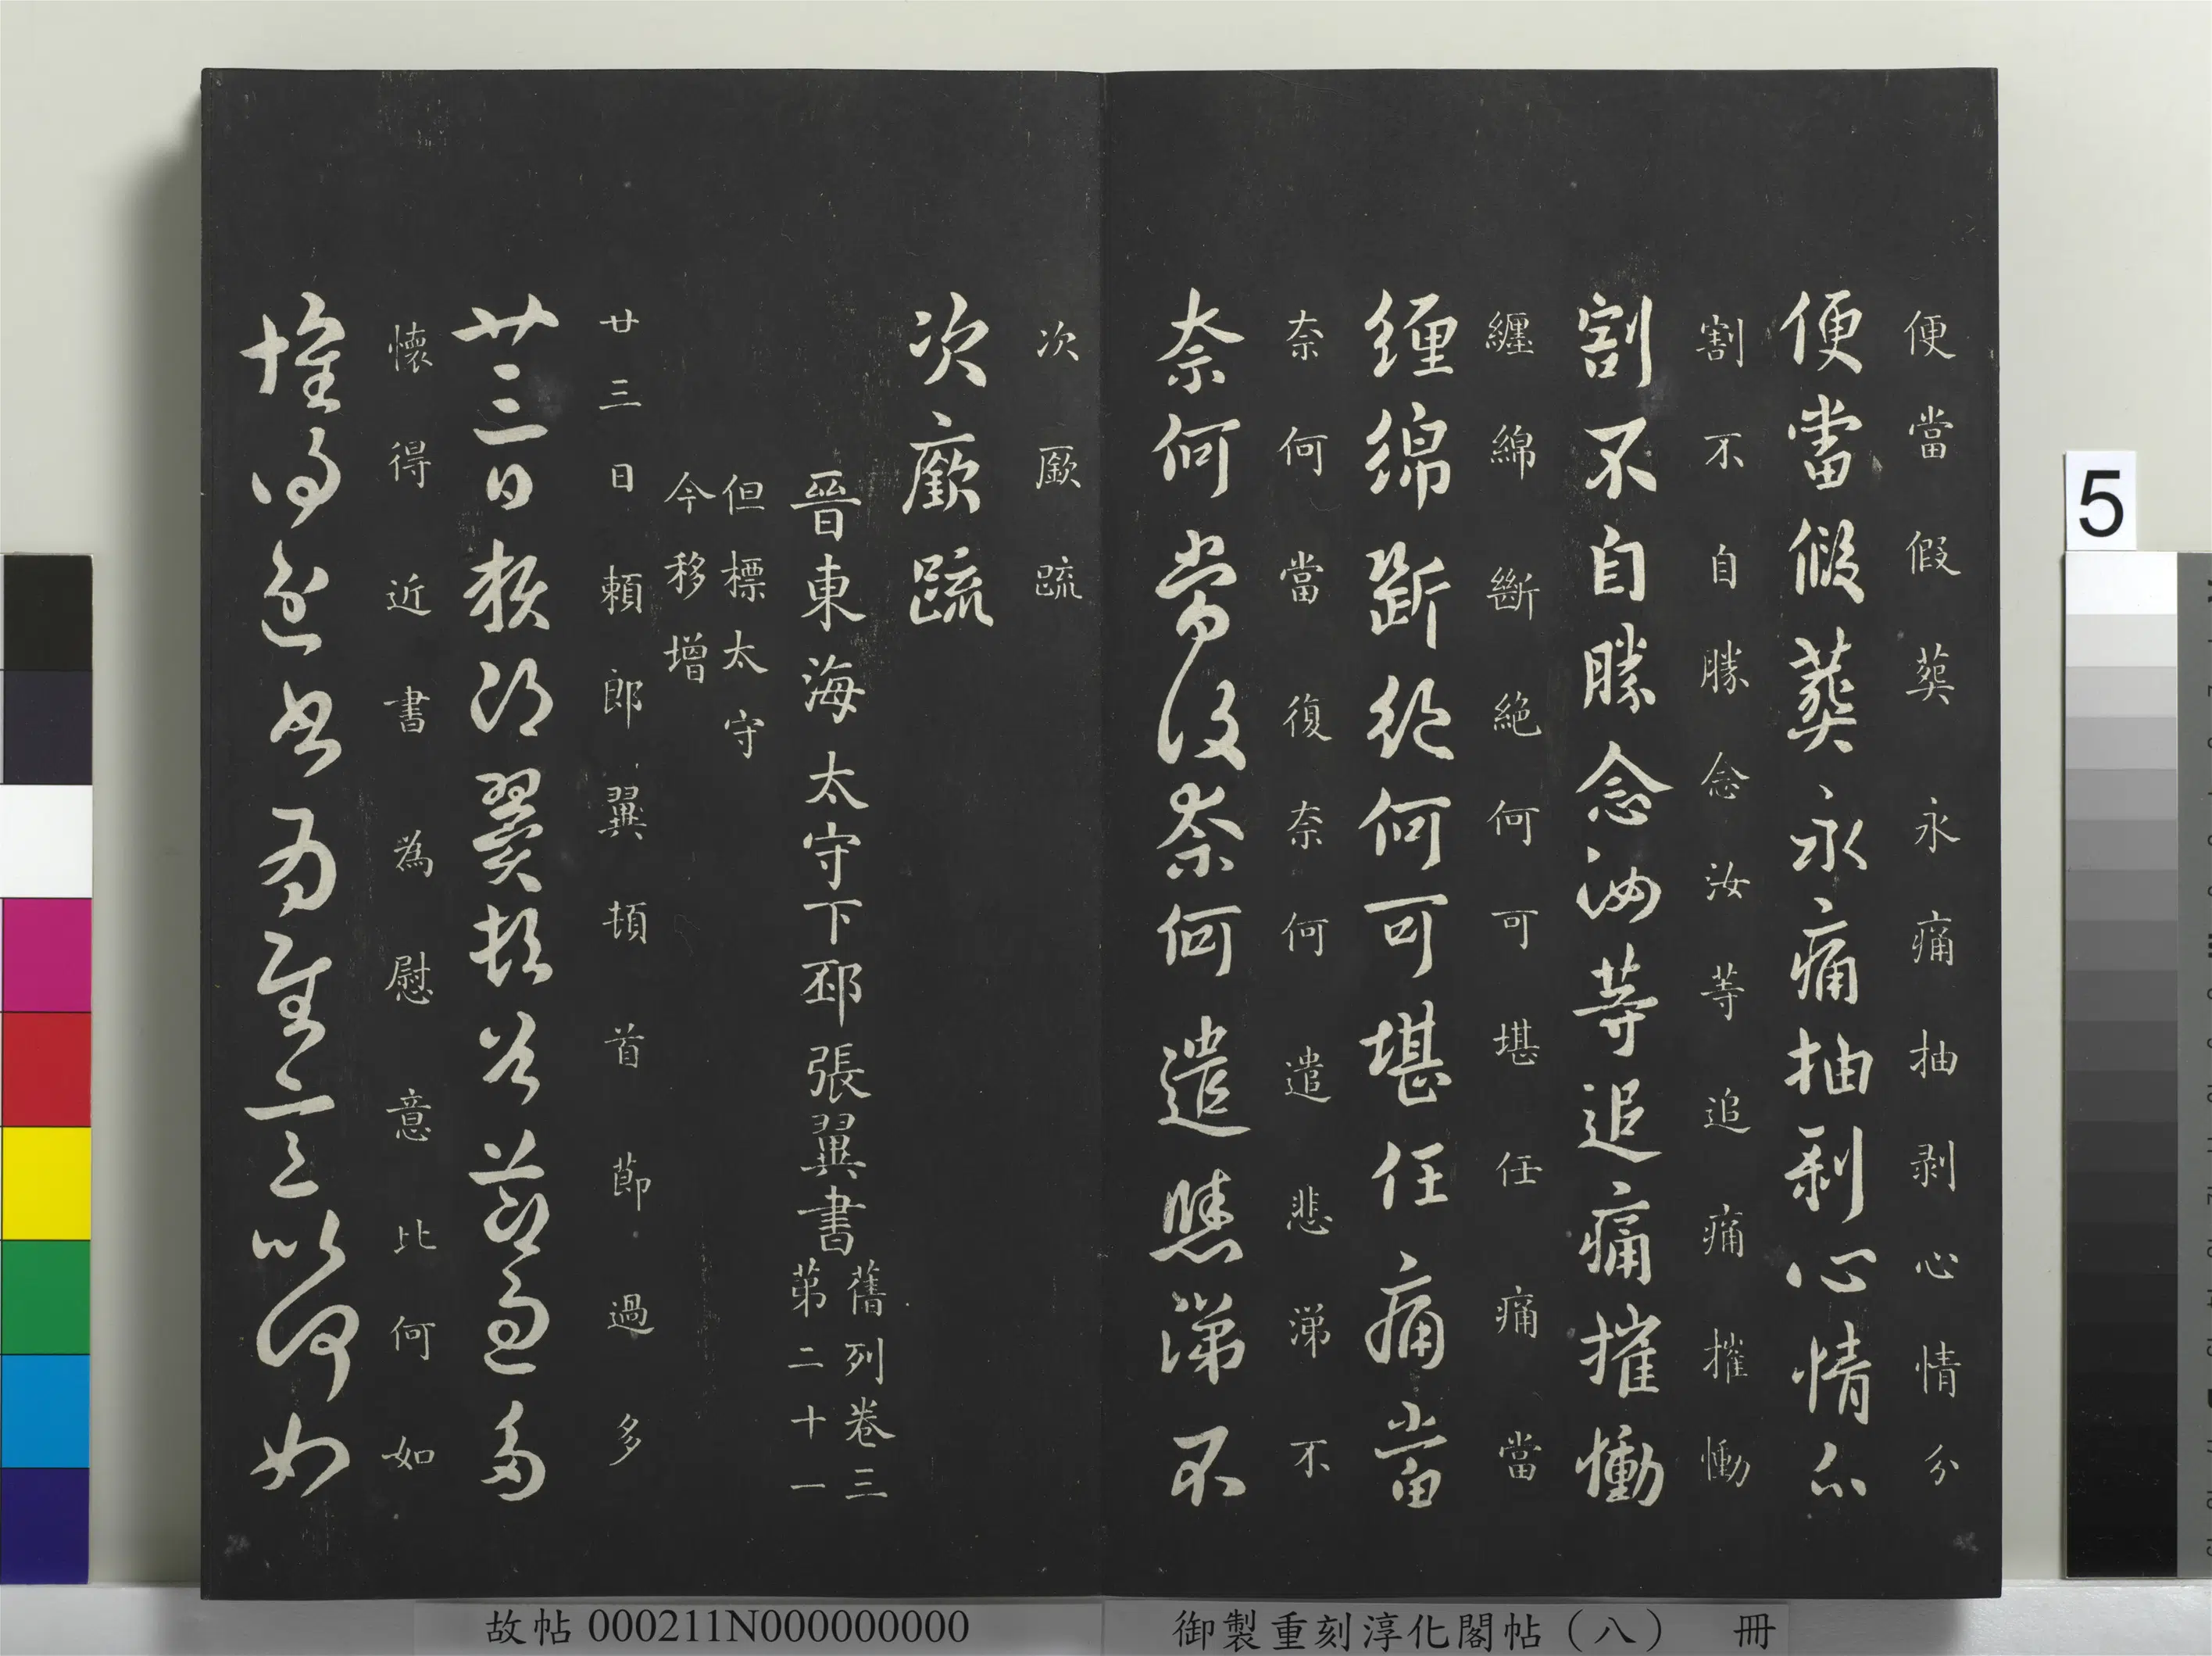 便當假葬永痛抽剥心情分
便當假葬永痛抽剥心情分
割不自勝念汝等追痛摧慟
割不自勝念汝等追痛摧慟
纏綿斷絕何可堪任痛當
纏綿斷絕何可堪任痛當
奈何當復奈何遣悲涕不
奈何當復奈何遣悲涕不
次廞疏
次廞疏
晉東海太守下邳張翼書
舊列卷三
第二十一
但標太守
今移增
廿三日賴郎翼頓首節過多
廿三日賴郎翼頓首節過多
懷得近書為慰意比何如
懷得近書為慰意比何如
5
故帖 000211N000000000
御製重刻淳化閣帖（八） 冊